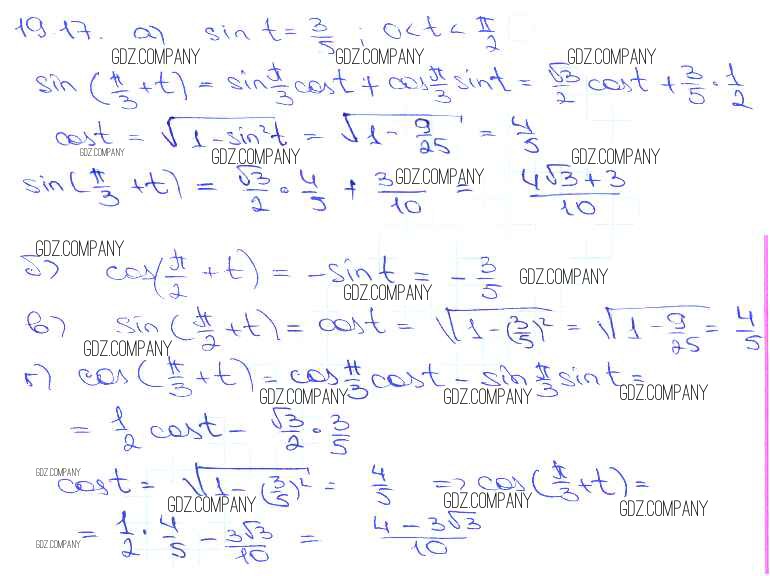 19.17. а) sin t = 3/5 ; 0 < t < π/2
GDZ.COMPANY GDZ.COMPANY GDZ.COMPANY
sin (π/3 + t) = sin π/3 cos t + cos π/3 sin t = √3/2 cos t + 3/5 · 1/2
cos t = √(1 - sin²t) = √(1 - 9/25) = 4/5
GDZ.COMPANY GDZ.COMPANY GDZ.COMPANY
sin (π/3 + t) = √3/2 · 4/5 + 3/10 = (4√3 + 3)/10
GDZ.COMPANY
GDZ.COMPANY
б) cos(π/2 + t) = - sin t = - 3/5
GDZ.COMPANY GDZ.COMPANY
в) sin (π/2 + t) = cos t = √(1 - (3/5)²) = √(1 - 9/25) = 4/5
GDZ.COMPANY
г) cos (π/3 + t) = cos π/3 cos t - sin π/3 sin t =
GDZ.COMPANY GDZ.COMPANY GDZ.COMPANY
= 1/2 cos t - √3/2 · 3/5
GDZ.COMPANY
cos t = √(1 - (3/5)²) = 4/5 => cos (π/3 + t) =
GDZ.COMPANY GDZ.COMPANY GDZ.COMPANY
= 1/2 · 4/5 - 3√3/10 = (4 - 3√3)/10
GDZ.COMPANY